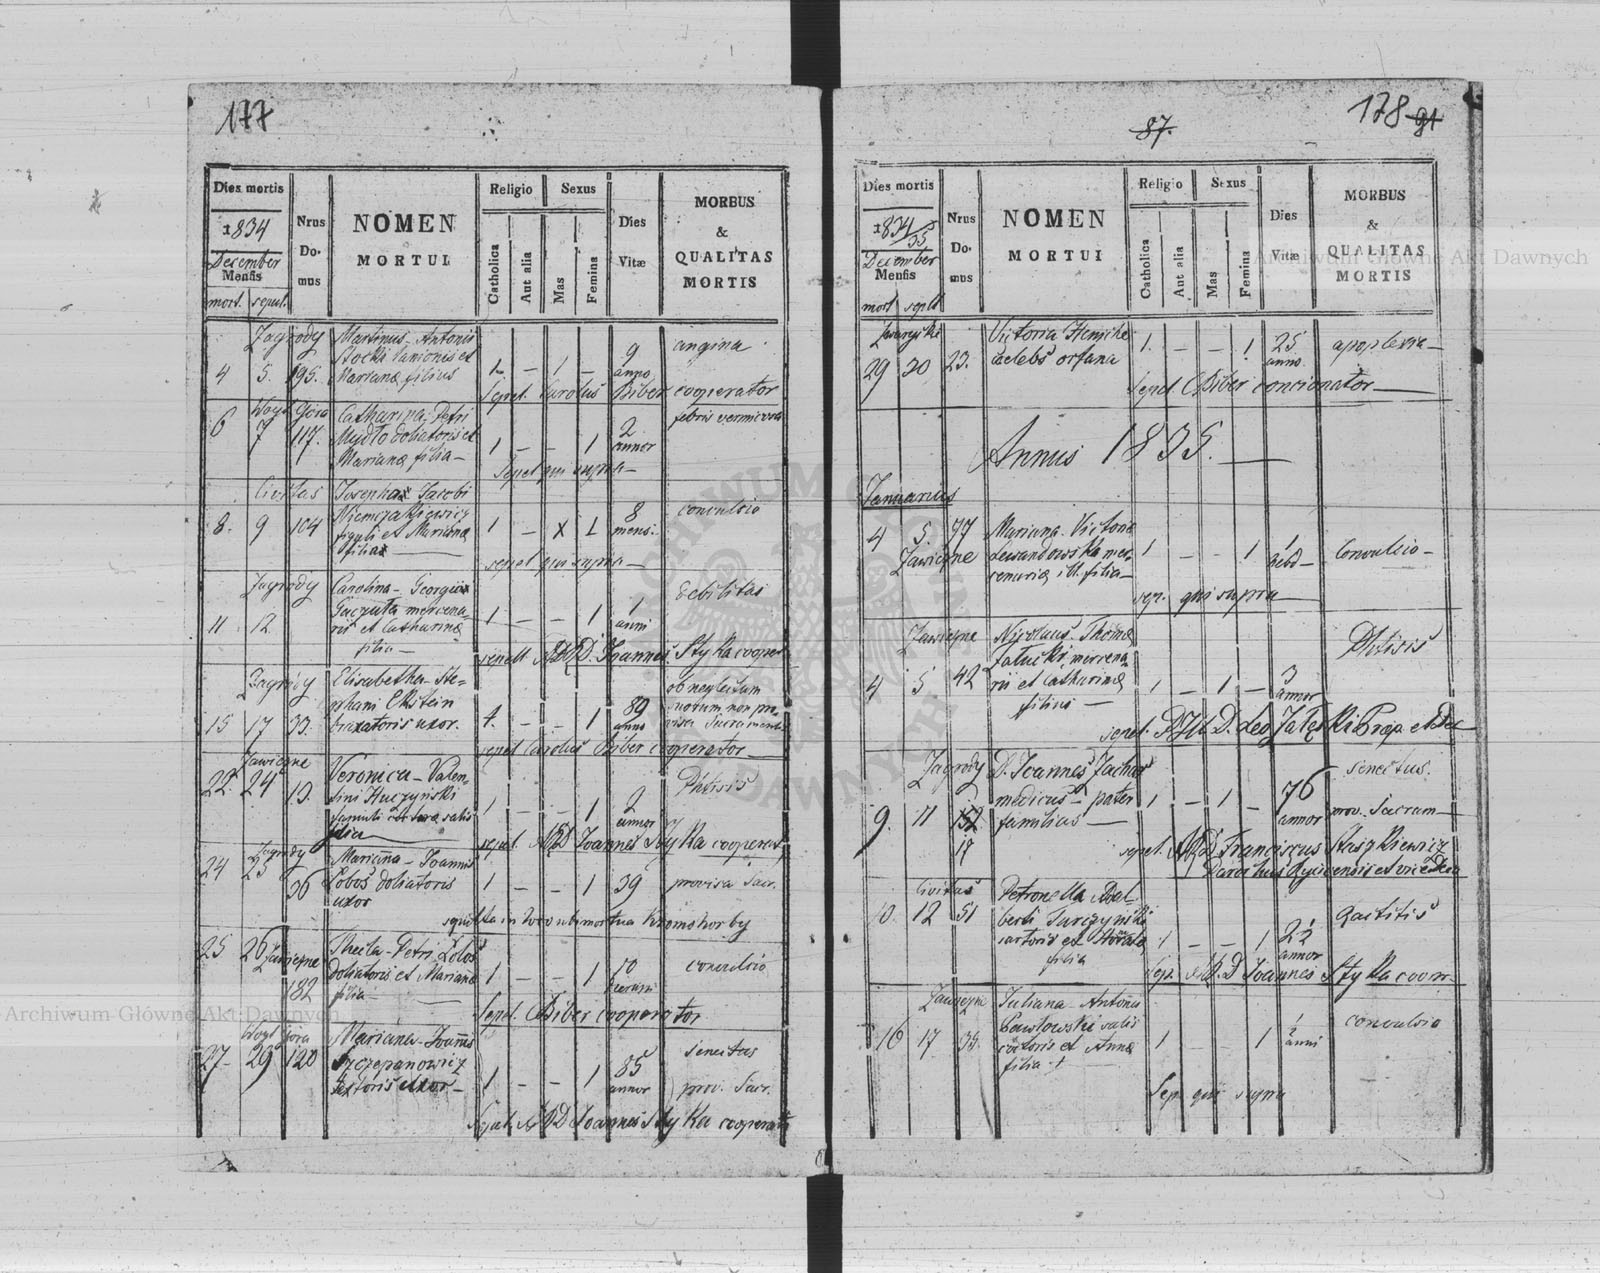 177
Dies mortis
1834
December
Mensis
mort. sepult.
Nrus
Do-
mus
NOMEN
MORTUI
Religio
Catholica
Aut alia
Sexus
Mas
Femina
Dies
Vitæ
MORBUS
&
QUALITAS
MORTIS
Zagrody
4 5. 195.
Martinus - Antonii
Stocki lanionis et
Marianæ filius
1 - 1 -
9
anno
angina
Sepel. Carolus Biber cooperator
Woyt Góra
6 7 117.
Catharina, Petri
Mydło doliatoris et
Marianæ filia -
1 - - 1
2
annor
febris verminosa
Sepel qui supra -
Civitas
8. 9 104
Josepha Jacobi
Niemczakiewicz
figuli et Marianæ
filia
1 - X 1
8
mens.
convulsio
sepel qui supra -
Zagrody
11 12
Carolina - Georgii
mercena-
rii et Catharinæ
filia -
1 - - 1
1
anni
debilitas
sepelt ARD. Joannes Styka cooper
Zagrody
15 17 33.
Elisabetha - Ste-
phani Ekstein
braxatoris uxor.
1. - - 1
89
anno
ob neglectum
suorum non pro-
visa Sacrament.
sepel Carolus Biber cooperator
Zawiezne
22. 24 13.
Veronica - Valen-
tini Huczyński
famuli
filia
1 - - 1
2
annor
Phtisis
sepel. ARD Joannes Styka cooperat
Zagrody
24 25 36
Marianna - Joannis
Łoboś doliatoris
uxor
1 - - 1 39
provisa Sacr.
sepulta in loco ubi mortua
25 26 Zawiezne
182
Thecla - Petri Łoboś
doliatoris et Marianæ
filia -
1 - - 1
convulsio
Sepel. CBiber cooperator
Woyt Góra
27 29 120
Mariana - Joannis
Szczepanowicz
textoris uxor -
1 - - 1
85
annor
Senectus
prov. Sacr.
Sepel. ARD Joannes Styka cooperat
178 91
87.
Dies mortis
1834/35
December
Mensis
mort seplt
Nrus
Do-
mus
NOMEN
MORTUI
Religio
Catholica
Aut alia
Sexus
Mas
Femina
Dies
Vitæ
MORBUS
&
QUALITAS
MORTIS
29 30 23.
Victoria
caelebs orfana
1. - - 1
25
anno
apoplexia -
Sepel. CBiber concionator
Annus 1835.
Januarius
4 5. 77
Zawiezne
Mariana - Victoria
Lewandowska mer-
cenariæ ill. filia -
1 - - 1
1
hebd -
Convulsio -
sep. qui supra
Zawiezne
4 5 42
Nicolaus - Thomæ
Załucki mercena-
rii et Catharinæ
filius -
1 - 1 -
3
annor
Phtisis
sepel. D. Leo
Zagrody
9. 11
19
D. Joannes Zachar
medicus - pater
familias -
1 - 1 -
76
annor
senectus.
prov. Sacram
sepel. ARD Franciscus Stuszkiewicz
Parochus
Civitas
10. 12 51
Petronella Adal-
berti
sartoris et
filia
1 - - 1
2½
annor
Gastitis
Sep. ARD Joannes Styka coop.
Zawiezne
16 17 35.
Juliana - Antonii
Pawłowski
et Annæ
filia
1 - - 1
½
anni
convulsio
Sep. qui supra
Archiwum Główne Akt Dawnych
Archiwum Główne Akt Dawnych
ARCHIWUM GŁÓWNE AKT DAWNYCH